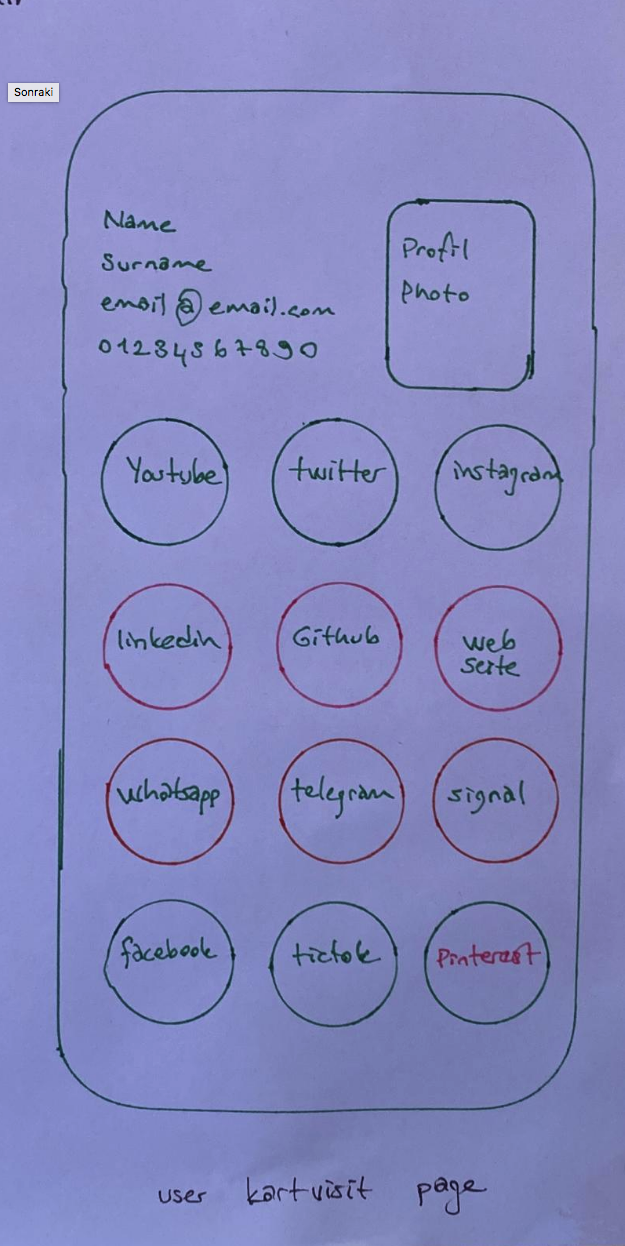 Sonraki
Name
Surname
email@email.com
01234567890
Profil
Photo
Youtube
twitter
instagram
linkedin
Github
web
seite
whatsapp
telegram
signal
facebook
tictok
Pinterest
user kartvisit page